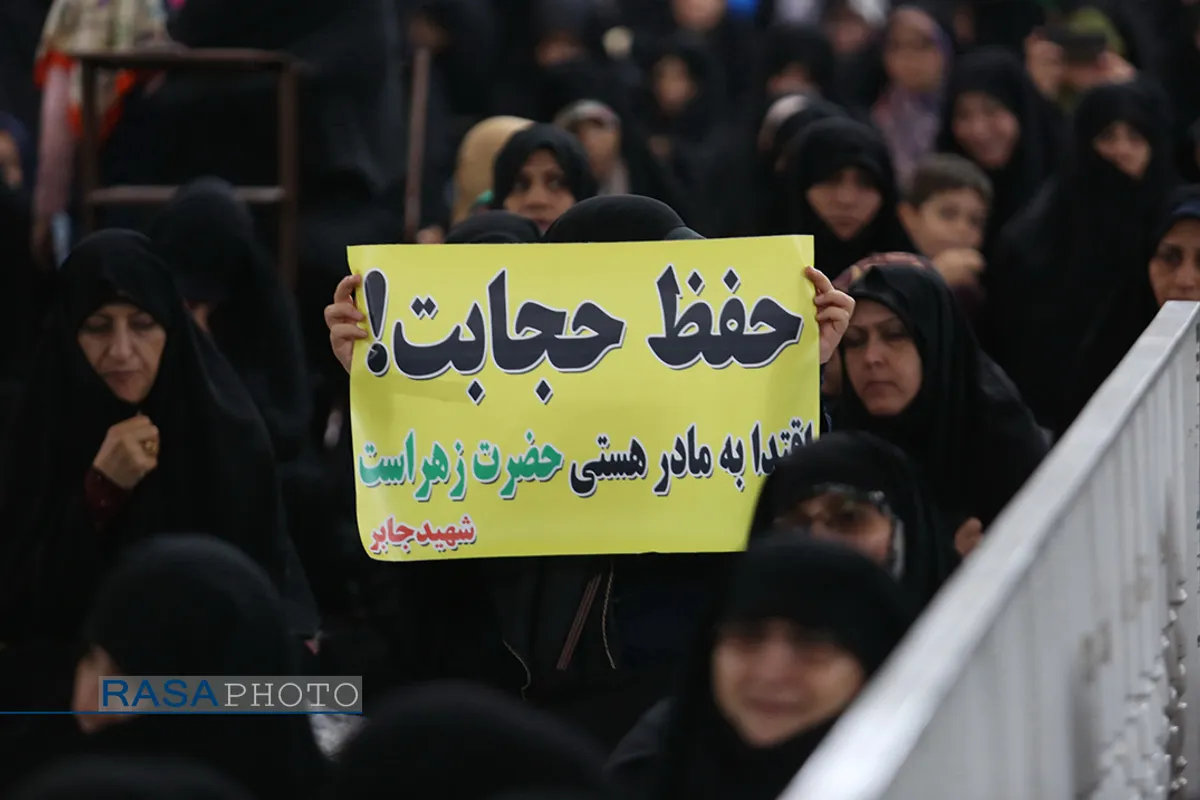 حفظ حجابت!
اقتدا به مادر هستی حضرت زهراست
شهید جابر
RASAPHOTO